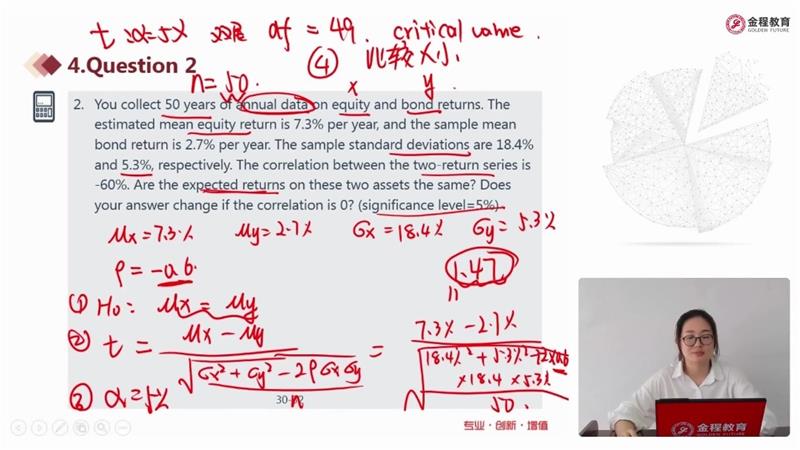 t α=5% 双尾 df = 49. critical value.
④ 比较大小
金程教育
GOLDEN FUTURE
4.Question 2
n=50. x y
2. You collect 50 years of annual data on equity and bond returns. The
estimated mean equity return is 7.3% per year, and the sample mean
bond return is 2.7% per year. The sample standard deviations are 18.4%
and 5.3%, respectively. The correlation between the two-return series is
-60%. Are the expected returns on these two assets the same? Does
your answer change if the correlation is 0? (significance level=5%)
μx=7.3% μy=2.7% σx=18.4% σy=5.3%
ρ = -0.6. 1.47
① H0: μx = μy
② t = μx - μy = 7.3% - 2.7%
√ σx²+σy²-2ρσxσy 18.4%²+5.3%²+2×0.6
×18.4×5.3%
③ α=5% n 50.
专业·创新·增值
金程教育